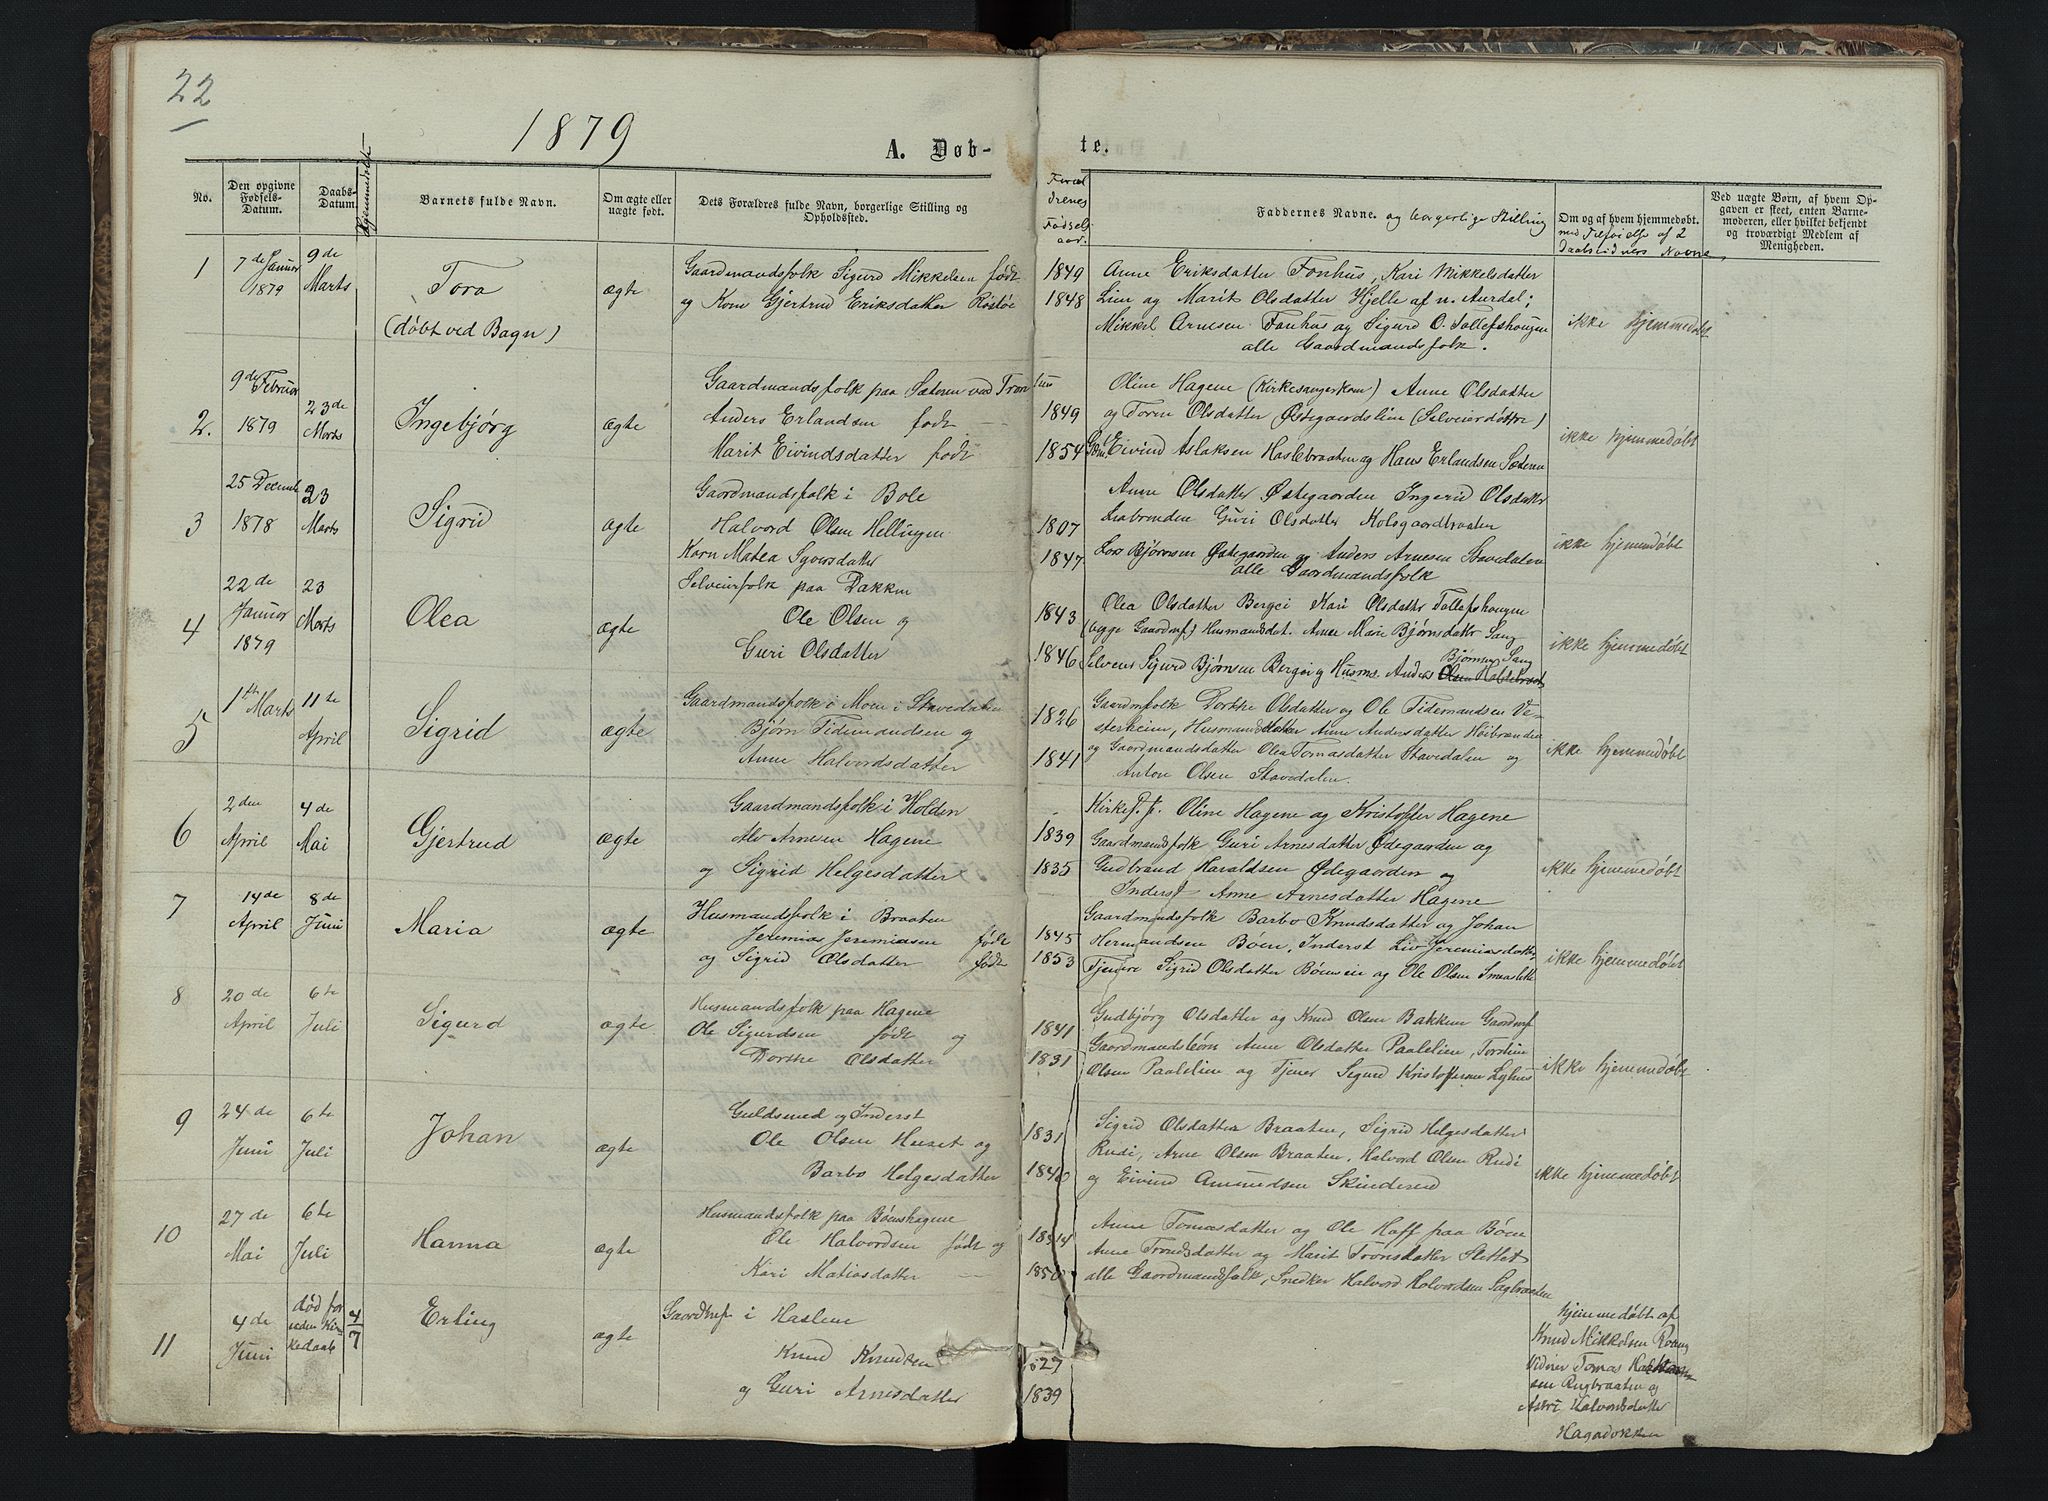 22
1879
A. Døb-
te.
No.
Den opgivne Fødsels-Datum.
Daabs-Datum.
Hjemmedøbt
Barnets fulde Navn.
Om ægte eller uægte født.
Dets Forældres fulde Navn, borgerlige Stilling og Opholdssted.
Foræl
drenes
Fødsels
aar.
Faddernes Navne. og borgerlige Stilling
Om og af hvem hjemmedøbt.
med Tilføielse af 2
Daabsvidners Navne
Ved uægte Børn, af hvem Op-
gaven er skeet, enten Barne-
moderen, eller hvilket bekjendt
og troværdigt Medlem af
Menigheden.
1
7de Januar 1879
9de Marts
Tora
(døbt ved Bagn)
ægte
Gaardmandsfolk Sigurd Mikkelsen født
og Kone Gjertrud Eriksdatter
1849
1848
Anne Eriksdatter Fonhus, Kari Mikkelsdatter
Lien og Marit Olsdatter Hjelle af n. Aurdal;
Mikkel Arnesen Fonhus og Sigurd O. Tollefshougen
alle Gaardmandsfolk.
ikke hjemmedøbt
2.
9de Februar 1879
23de Marts
Ingebjørg
ægte
Gaardmandsfolk paa Sæteren ved
Anders Erlandsen født
Marit Eivindsdatter født
1849
1854
Oline Hagene (Kirkesangerkone) Anne Olsdatter
og Toren Olsdatter Østegaardslien (Selveierdøttre)
Eivind Aslaksen Haslebraaten og Hans Erlandsen Sæteren
ikke hjemmedøbt
3
25 Decembr 1878
23 Marts
Sigrid
ægte
Gaardmandsfolk i Bole
Halvord Olsen Hellingen
Karn Matea Syversdatter
1807
1847
Anne Olsdatter Østegaarden Ingerid Olsdatter
Guri Olsdatter Kolsgaardbraaten
Lars Bjørnsen Østegaarden og Anders Arnesen Stavedalen
alle Gaardmandsfolk
ikke hjemmedøbt
4
22de Januar 1879
23 Marts
Olea
ægte
Selveierfolk paa Bakken
Ole Olsen og
Guri Olsdatter
1843
1846
Olea Olsdatter Bergei Kari Olsdatter Tollefshougen
(begge Gaardmf) Husmandsdat. Anne Marie Bjørnsdatter Sang
Selveier Sigurd Bjørnsen Bergei og Husms. Anders Bjørnsen Sang
ikke hjemmedøbt
5
1ste Marts
11te April
Sigrid
ægte
Gaardmandsfolk i Moen i Stavedalen
Bjørn Tidemandsen og
Anne Halvordsdatter
1826
1841
Gaardmfolk Dorthe Olsdatter og Ole Tidemandsen Ve-
sterheim, Husmandsdatter Anne Andersdatter Høibraaten
og Gaardmandsdatter Olea Tomasdatter Stavedalen og
Anton Olsen Stavedalen.
ikke hjemmedøbt
6
2den April
4de Mai
Gjertrud
ægte
Gaardmandsfolk i Holden
Alv Arnesen Hagene
og Sigrid Helgesdatter
1839
1835
Kirkes. f. Oline Hagene og Kristoffer Hagene
Gaardmandsfolk Guri Arnesdatter Ødegaarden og
Gudbrand Haraldsen Ødegaarden og
Inderst Anne Arnesdatter Hagene
ikke hjemmedøbt
7
14de April
8de Juni
Maria
ægte
Husmandsfolk i Braaten
Jeremias Jeremiasen født
og Sigrid Olsdatter født
1845
1853
Gaardmandsfolk Barbo Knudsdatter og Johan
Hermandsen Bøen, Inderst Liv Jeremiasdatter
Tjenere Sigrid Olsdatter Bøenseie og Ole Olsen
ikke hjemmedøbt
8
20de April
6te Juli
Sigurd
ægte
Husmandsfolk paa Hagene
Ole Sigurdsen født og
Dorthe Olsdatter
1841
1831
Gudbjørg Olsdatter og Knud Olsen Bakken Gaardmf
Gaardmandsbørn Anne Olsdatter Paalslien, Torstein
Olsen Paalslien og Tjener Sigurd Kristoffersen Lyhus
ikke hjemmedøbt
9
24de Juni
6te Juli
Johan
ægte
Guldsmed og Inderst
Ole Olsen Huset og
Barbo Helgesdatter
1831
1840
Sigrid Olsdatter Braaten, Sigrid Helgesdatter
Rudi, Arne Olsen Braaten, Halvord Olsen Rudi
og Eivind Amundsen Skinderud
ikke hjemmedøbt
10
27de Mai
6te Juli
Hanna
ægte
Husmandsfolk paa Bøenshagene
Ole Halvordsen født og
Kari Matiasdatter
1850
Anne Tomasdatter og Ole Hoff paa Bøen
Anne Trondsdatter og Marit Tronsdatter Slettet
alle Gaardmandsfolk, Snedker Halvord Halvordsen Sagbraaten
11
4de Juni
død før
uden Kir-
kedaab
4/7
Erling
ægte
Gaardbrf i Haslene
Knud Knudsen
og Guri Arnesdatter
1827
1839
hjemmedøbt af
Knud Mikkelsen
Vidner Tomas
sen Rugbraaten og
Astri Halvordsdatter
Hagabakken